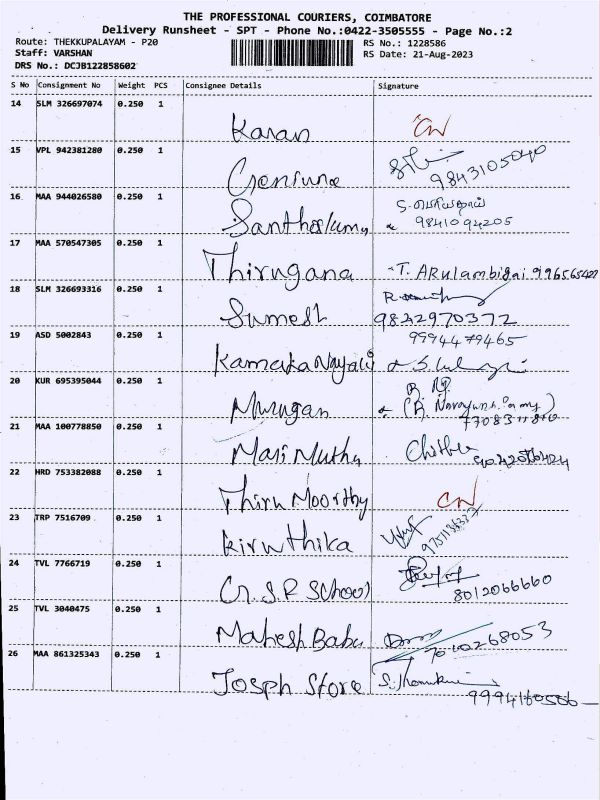 THE PROFESSIONAL COURIERS, COIMBATORE
Delivery Runsheet - SPT - Phone No.:0422-3505555 - Page No.:2
Route: THEKKUPALAYAM - P20 RS No.: 1228586
Staff: VARSHAN RS Date: 21-Aug-2023
DRS No.: DCJB122858602
S No Consignment No Weight PCS Consignee Details Signature
14 SLM 326697074 0.250 1 Karan CN
15 VPL 942381280 0.250 1 9843105040
16 MAA 944026580 0.250 1 9841094205
17 MAA 570547305 0.250 1 Thirugana T. ARulambigai
18 SLM 326693316 0.250 1 Sumesh 9822970372
19 ASD 5002843 0.250 1 9994479465
20 KUR 695395044 0.250 1 Murugan
21 MAA 100778850 0.250 1 Mari Muthu Chithra
22 HRD 753382088 0.250 1 Thiru Moorthy CN
23 TRP 7516709 0.250 1 kiruthika
24 TVL 7766719 0.250 1 G.S.R School 8012066660
25 TVL 3040475 0.250 1 Mahesh Babu
26 MAA 861325343 0.250 1 Josph Store